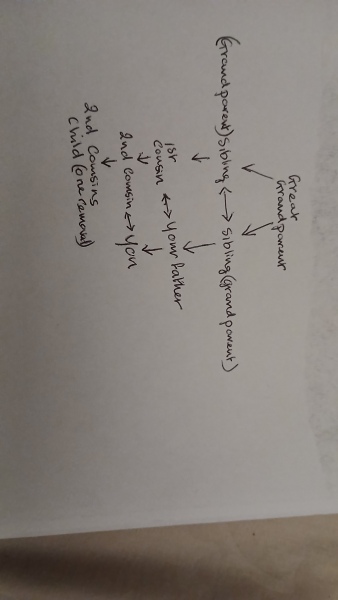 Great
Grandparent
(Grandparent) Sibling ↔ Sibling (grandparent)
1st
Cousin ↔ Your father
2nd Cousin ↔ You
2nd Cousins
Child (one removal)